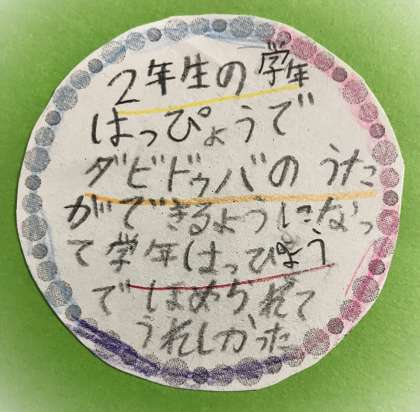 2年生の学年
はっぴょうで
ダビドゥバのうた
ができるようになっ
て学年はっぴょう
でほめられて
うれしかった